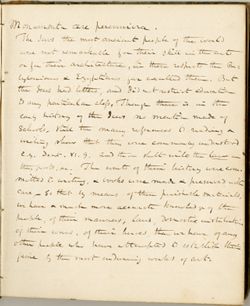 Monumenta aere perenniora
The Jews the most ancient people of the world
were not remarkable for their skill in the arts
or for their architecture, in these respects the Ba-
bylonians & Egyptians far excelled them. But
the Jews had letters, and did not restrict education
to any particular class. Though there is in the
early history of the Jews no mention made of
Schools, still the many references to reading &
writing show that they were commonly understood
e.g. Deut. XI. 9. and thou shalt write them on
the posts, &c. The events of their history were com-
mitted to writing, & books were made & preserved with
care - so that by means of these perishable materials
we have a much more accurate knowledge of the
people, of their manners, laws, domestic institutions
of their wars, of their heroes than we have of any
other people who have attempted to establish their
fame by the most enduring works of art.